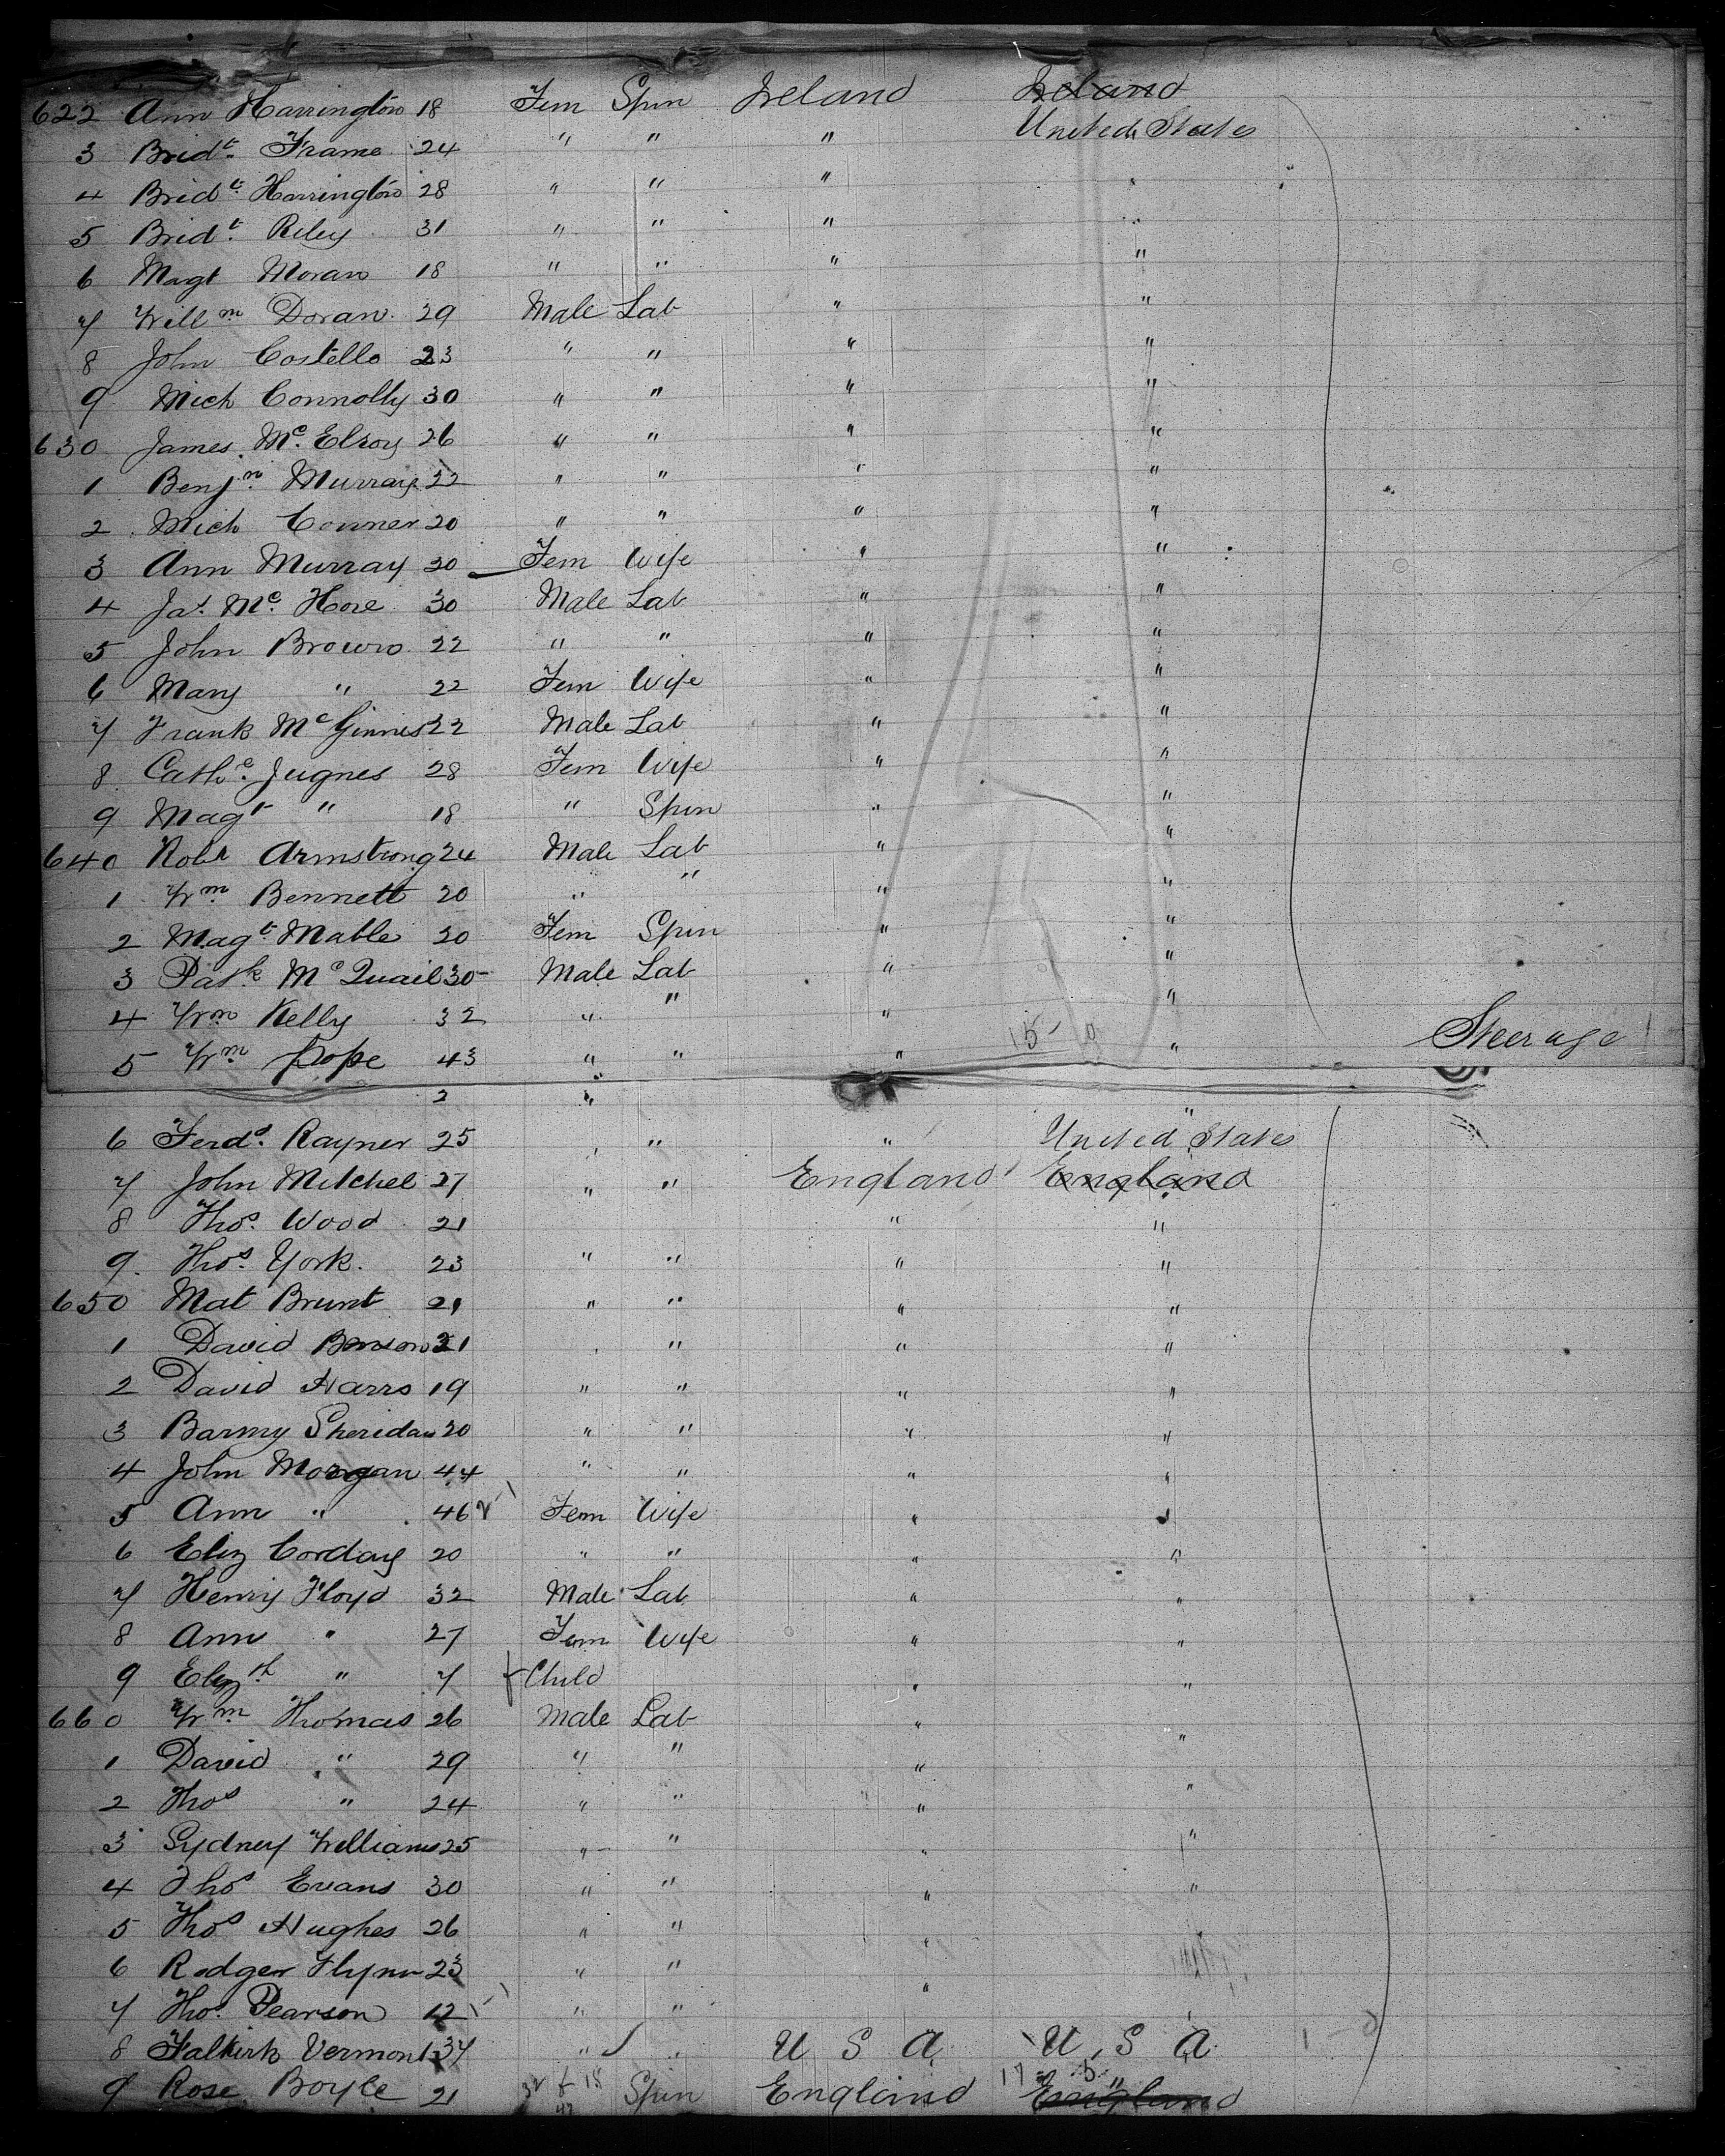 622 Ann Harrington 18 Fem Spin Ireland Ireland
United States
3 Bridt. Frame 24 " " "
4 Bridt. Harrington 28 " " " "
5 Bridt. Riley 31 " " " "
6 Magt Moran 18 " " " "
7 Willm Doran 29 Male Lab " "
8 John Costello 23 " " " "
9 Mich Connolly 30 " " " "
630 James McElroy 26 " " " "
1 Benjn. Murray 22 " " " "
2 Mich Conner 20 " " " "
3 Ann Murray 20 Fem Wife " "
4 Jas. Mc. Hore 30 Male Lab " "
5 John Brown 22 " " " "
6 Mary " 22 Fem Wife " "
7 Frank McGinnis 22 Male Lab " "
8 Cathe. Jugnes 28 Fem Wife " "
9 Magt " 18 " Spin " "
640 Robt Armstrong 24 Male Lab " "
1 Wm. Bennett 20 " " " "
2 Magt. Mable 20 Fem Spin " "
3 Patk McQuail 30 Male Lab " "
4 Wm Kelly 32 " " " "
5 Wm. Pope 43 " " " " Steerage
2 "
6 Ferdd. Rayner 25 " " " United States
7 John Mitchel 27 " " England England
8 Thos. Wood 21 " "
9 Thos. York 23 " " " "
650 Mat Brunt 21 " " " "
1 David Benson 21 " " " "
2 David Harrs 19 " " " "
3 Barmy Sheridan 20 " " " "
4 John Morgan 44 " " " "
5 Ann " 46 Fem Wife " "
6 Eliz Corday 20 " " " "
7 Henry Floyd 32 Male Lab " "
8 Ann " 27 Fem Wife " "
9 Elizth " 7 Child " "
660 Wm Thomas 26 Male Lab " "
1 David " 29 " " " "
2 Thos " 24 " " " "
3 Sydney Williams 25 " " " "
4 Thos Evans 30 " " " "
5 Thos Hughes 26 " " "
6 Rodger Flynn 23 " " "
7 Thos. Pearson 12 " "
8 Falkirk Vermont 37 " " U S A U S A
9 Rose Boyle 21 Spin England England